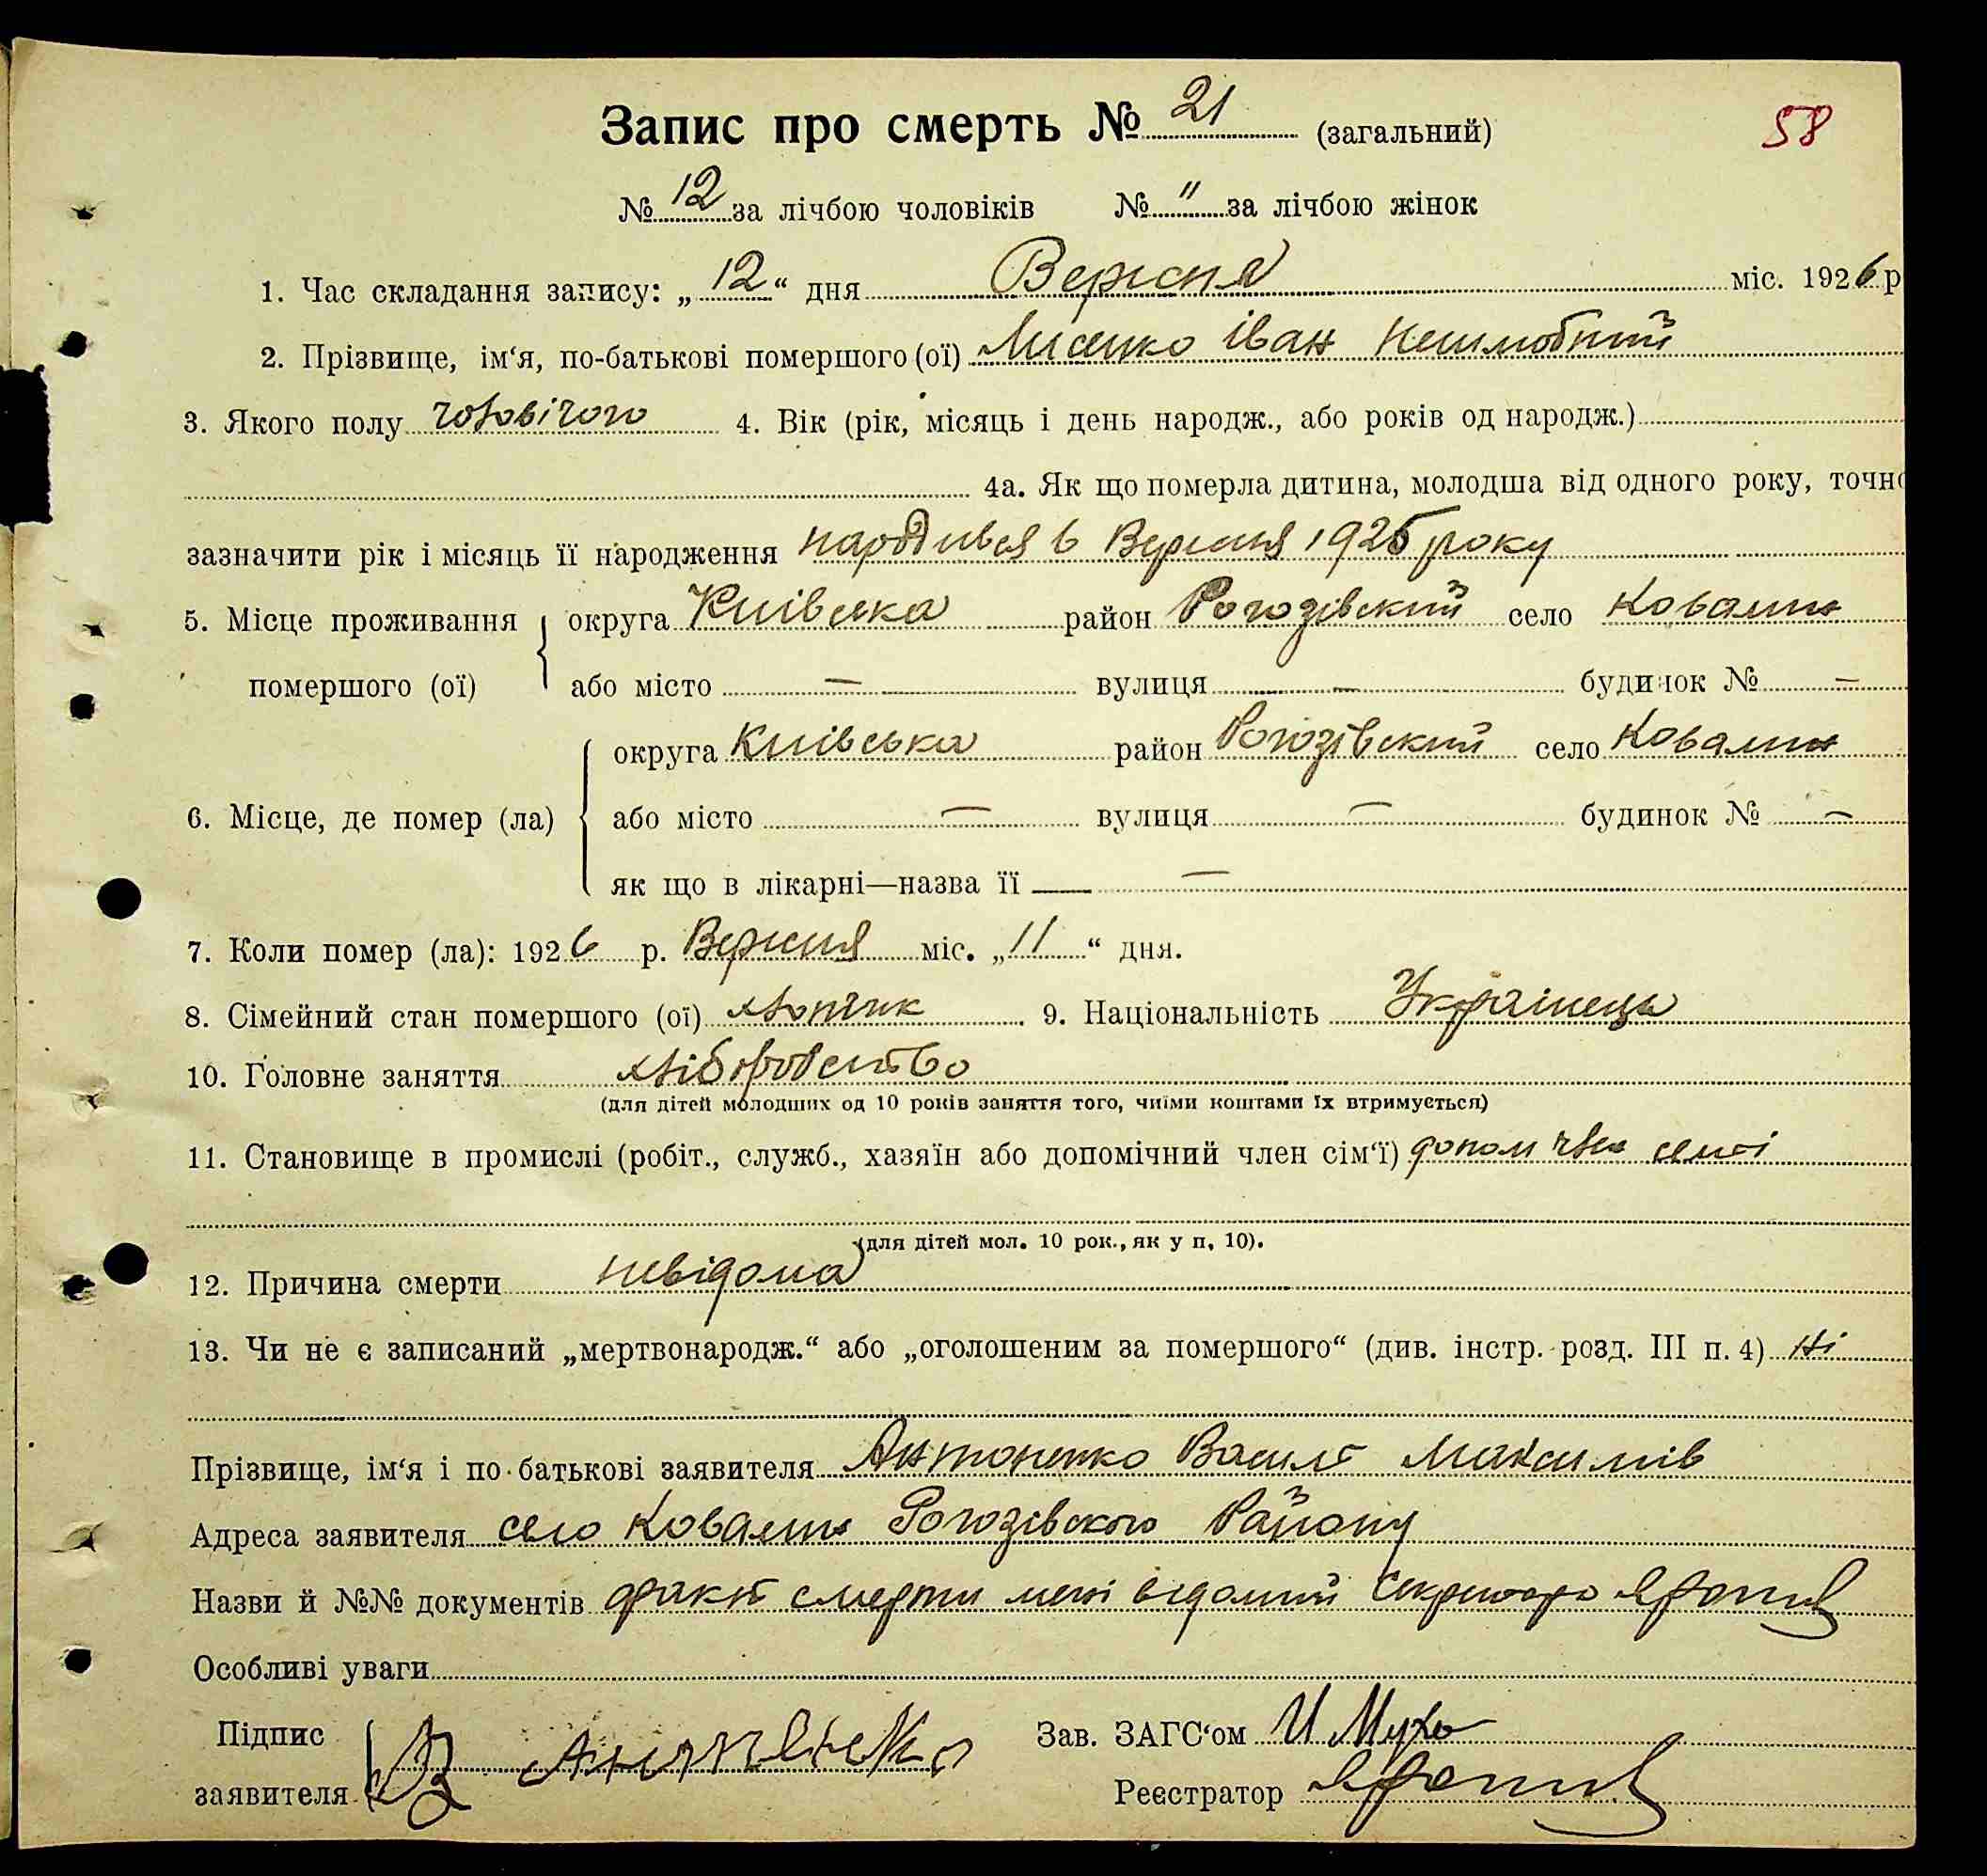 Запис про смерть № 21 (загальний)
58
№ 12 за лічбою чоловіків № " за лічбою жінок
1. Час складання запису: „12“ дня Версня міс. 1926 р
2. Прізвище, ім‘я, по-батькові помершого (ої) Лисенко Іван Нешлюбний
3. Якого полу чоловічого 4. Вік (рік, місяць і день народж., або років од народж.)
4а. Як що померла дитина, молодша від одного року, точно
зазначити рік і місяць її народження народився в Вересня 1925 року
5. Місце проживання округа Київська район Рогозівский село Ковалин
помершого (ої) або місто — вулиця — будинок № —
округа Київська район Рогозівский село Ковалин
6. Місце, де помер (ла) або місто — вулиця — будинок № —
як що в лікарні—назва її —
7. Коли помер (ла): 1926 р. Вересня міс. „11“ дня.
8. Сімейний стан помершого (ої) хлопчик 9. Національність Українець
10. Головне заняття хліборобство
(для дітей молодших од 10 років заняття того, чиїми коштами їх втримується)
11. Становище в промислі (робіт., служб., хазяїн або допомічний член сім‘ї) допом член семї
(для дітей мол. 10 рок., як у п. 10).
12. Причина смерти невідома
13. Чи не є записаний „мертвонародж.“ або „оголошеним за помершого“ (див. інстр. розд. III п. 4) Ні
Прізвище, ім‘я і по-батькові заявителя Антоненко Василь Максимів
Адреса заявителя село Ковалин Рогозівского Району
Назви й №№ документів факт смерти мені відомий Секретарь
Особливі уваги
Підпис
заявителя В Антоненко
Зав. ЗАГС‘ом И Муха
Реєстратор